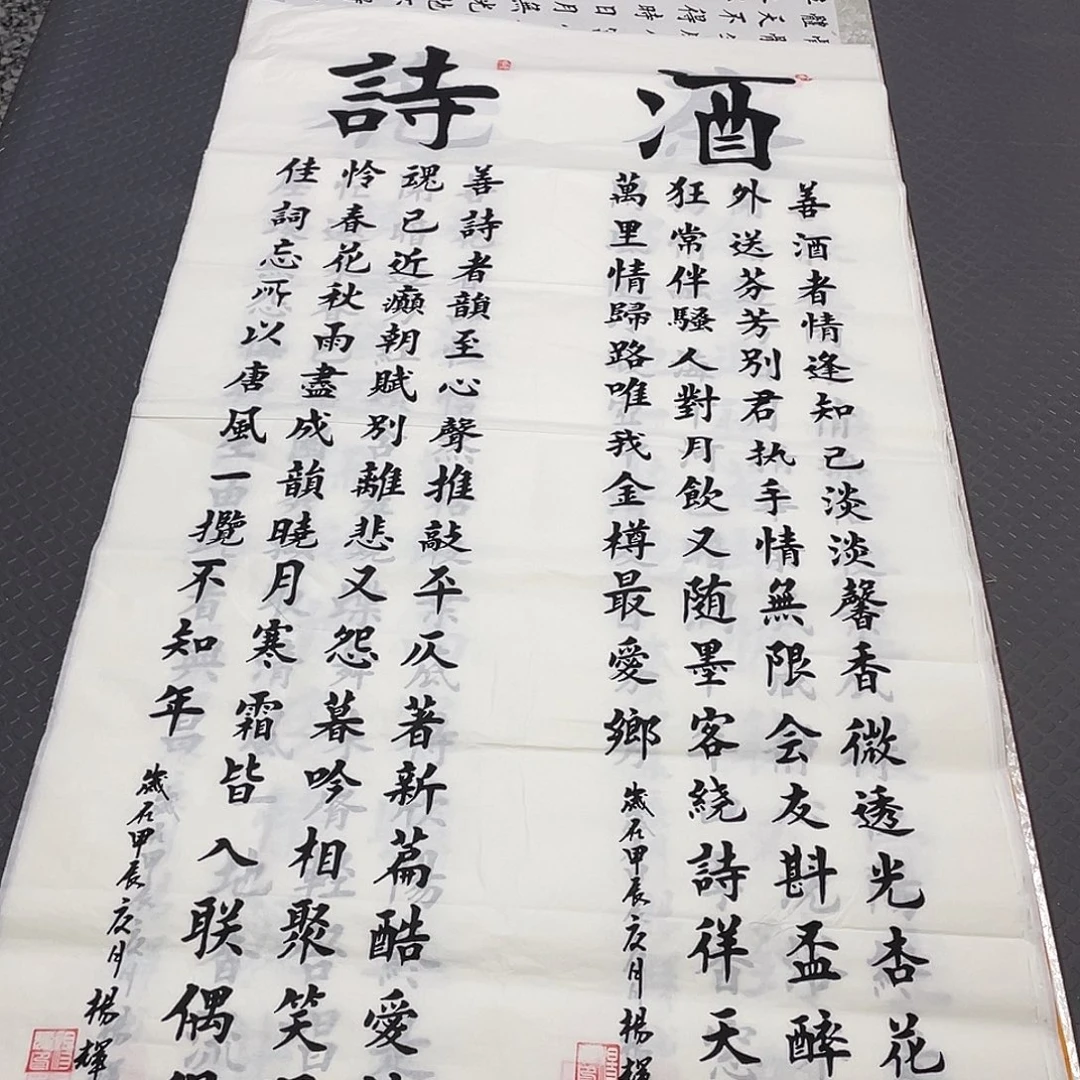 酒
善酒者情逢知己淡淡馨香微透光杏花
外送芬芳別君执手情無限会友斟盃醉
狂常伴騷人對月飲又随墨客绕詩祥天
萬里情歸路唯我金樽最愛鄉
歲在甲辰夏月楊輝
詩
善詩者韻至心聲推敲平仄著新篇酷愛
魂已近癲朝賦別離悲又怨暮吟相聚笑
怜春花秋雨盡成韻曉月寒霜皆入联偶
佳詞忘所以唐風一攬不知年
歲在甲辰夏月楊輝